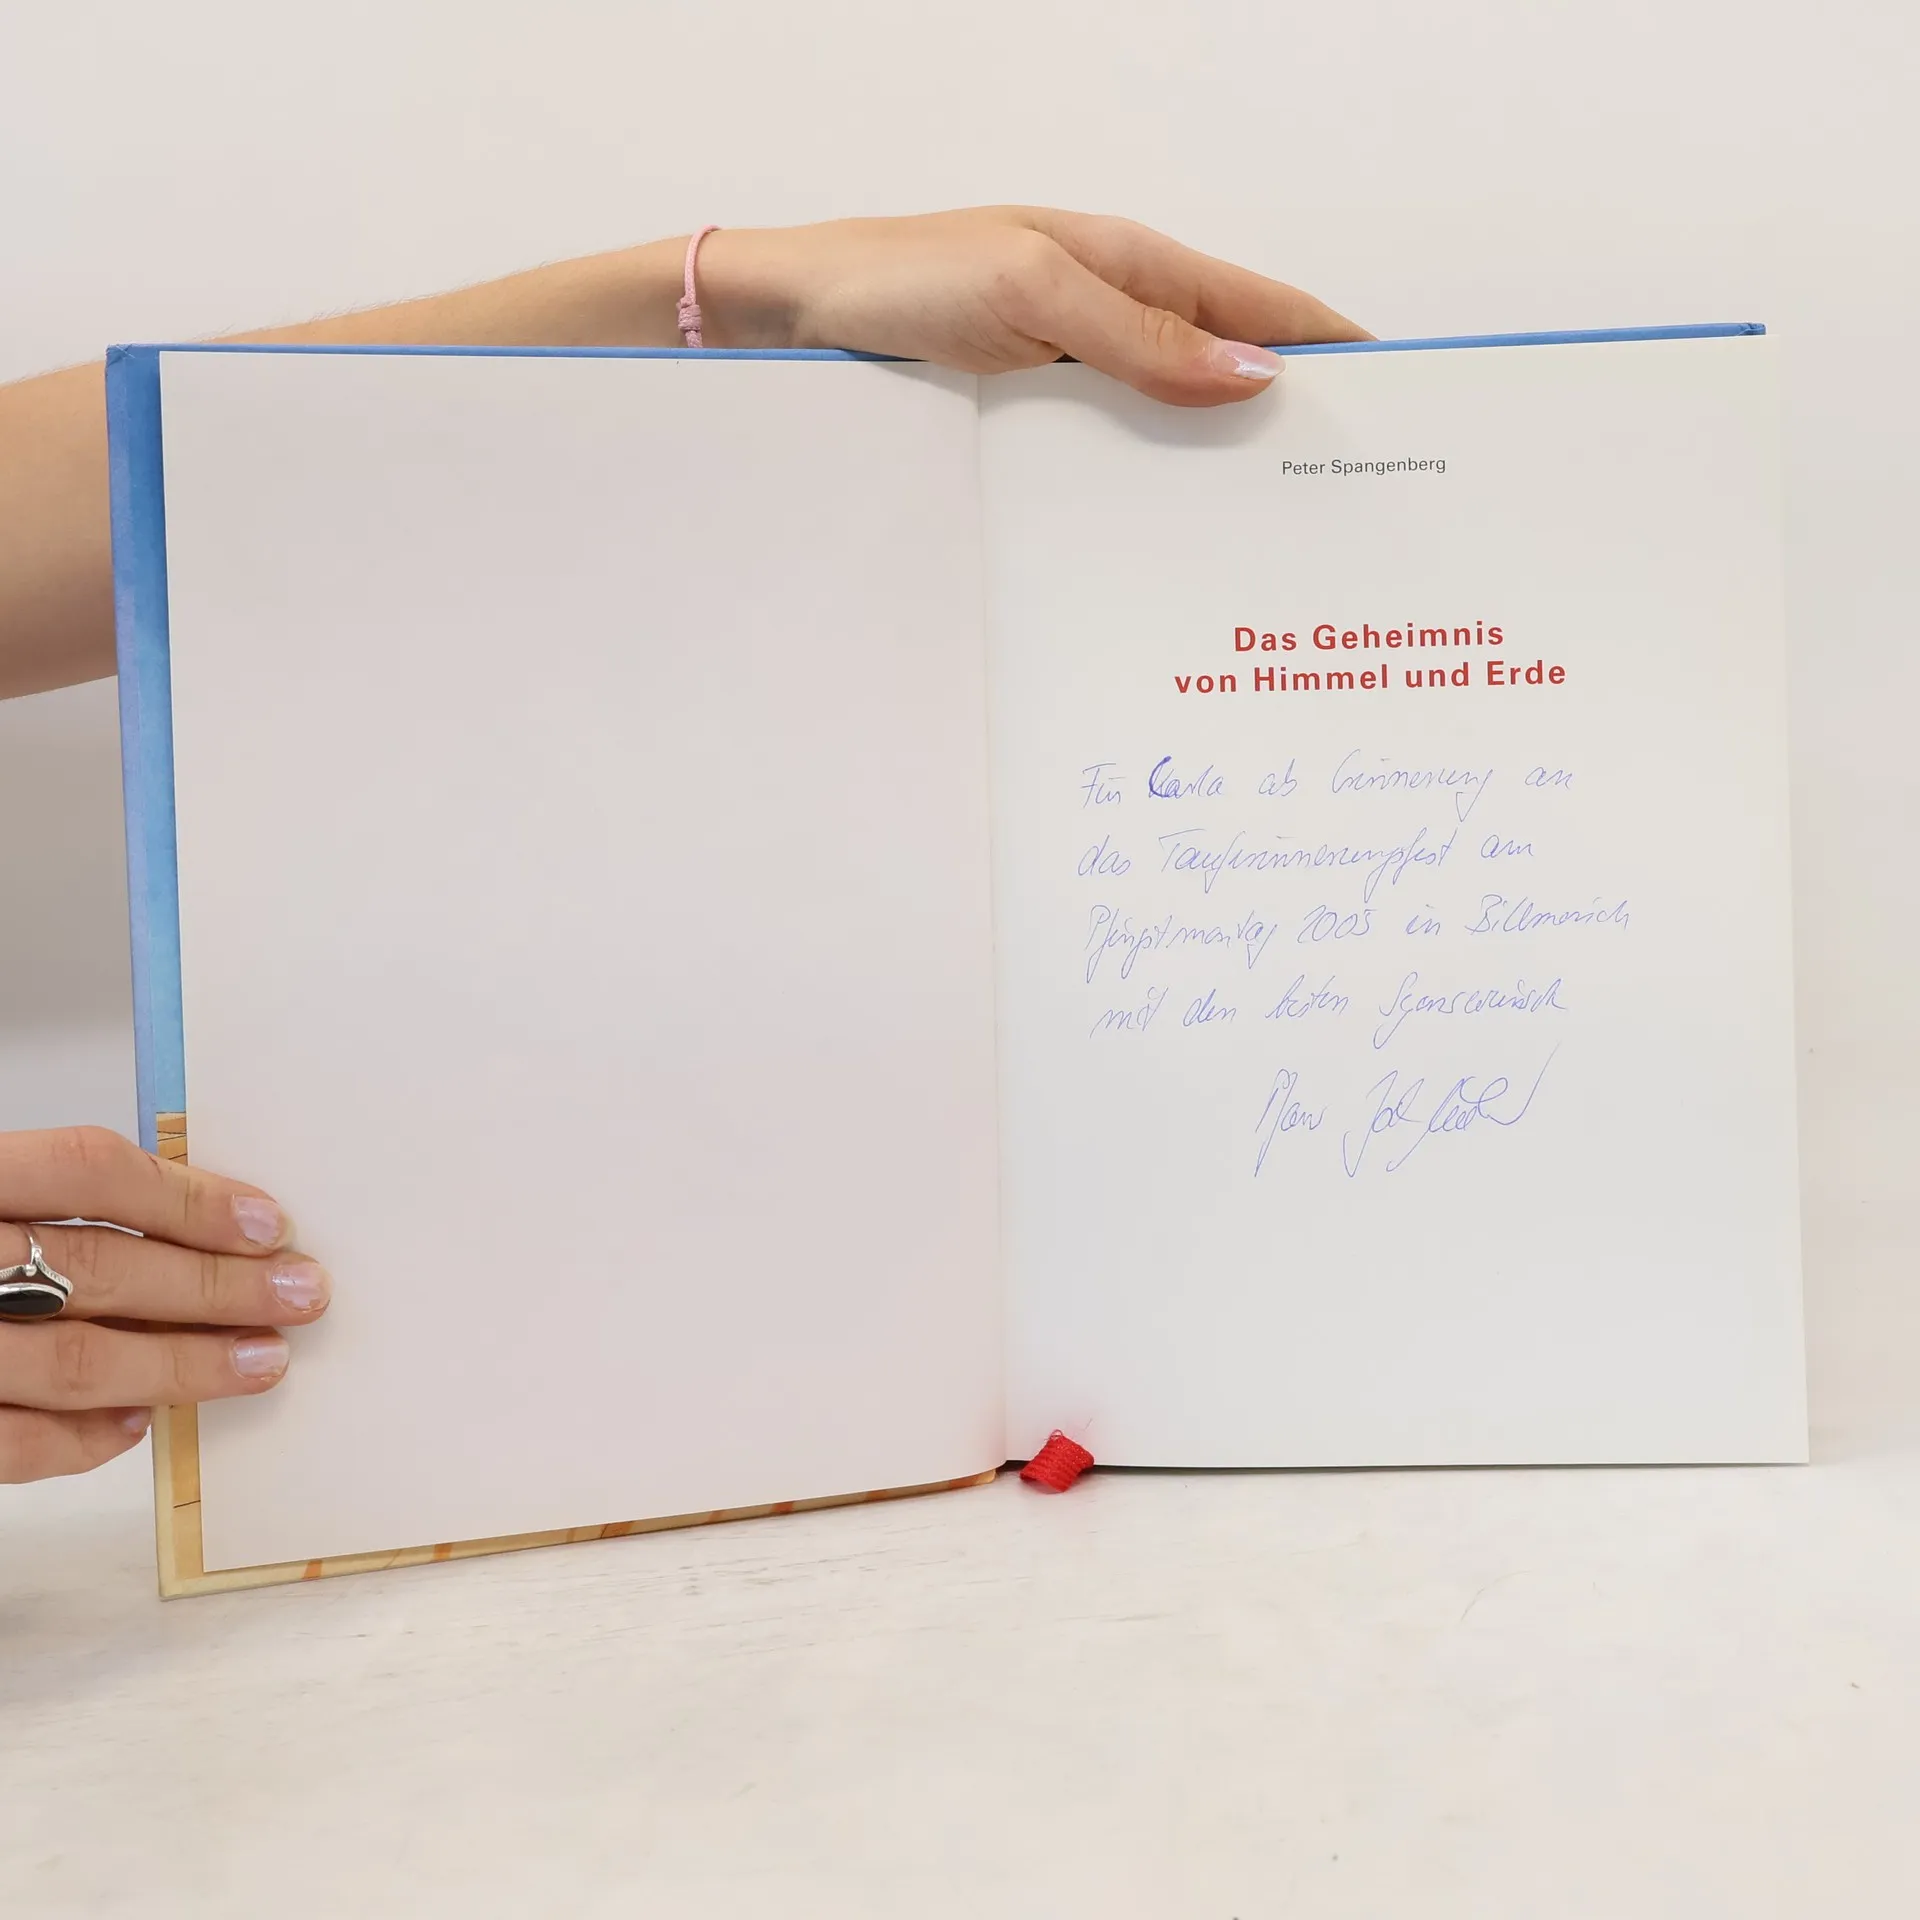 Peter Spangenberg
Das Geheimnis
von Himmel und Erde
Für Carla als Erinnerung an
das Tauferinnerungsfest am
Pfingstmontag 2005 in Billmerich
mit den besten Segenswünsch
Pfarr